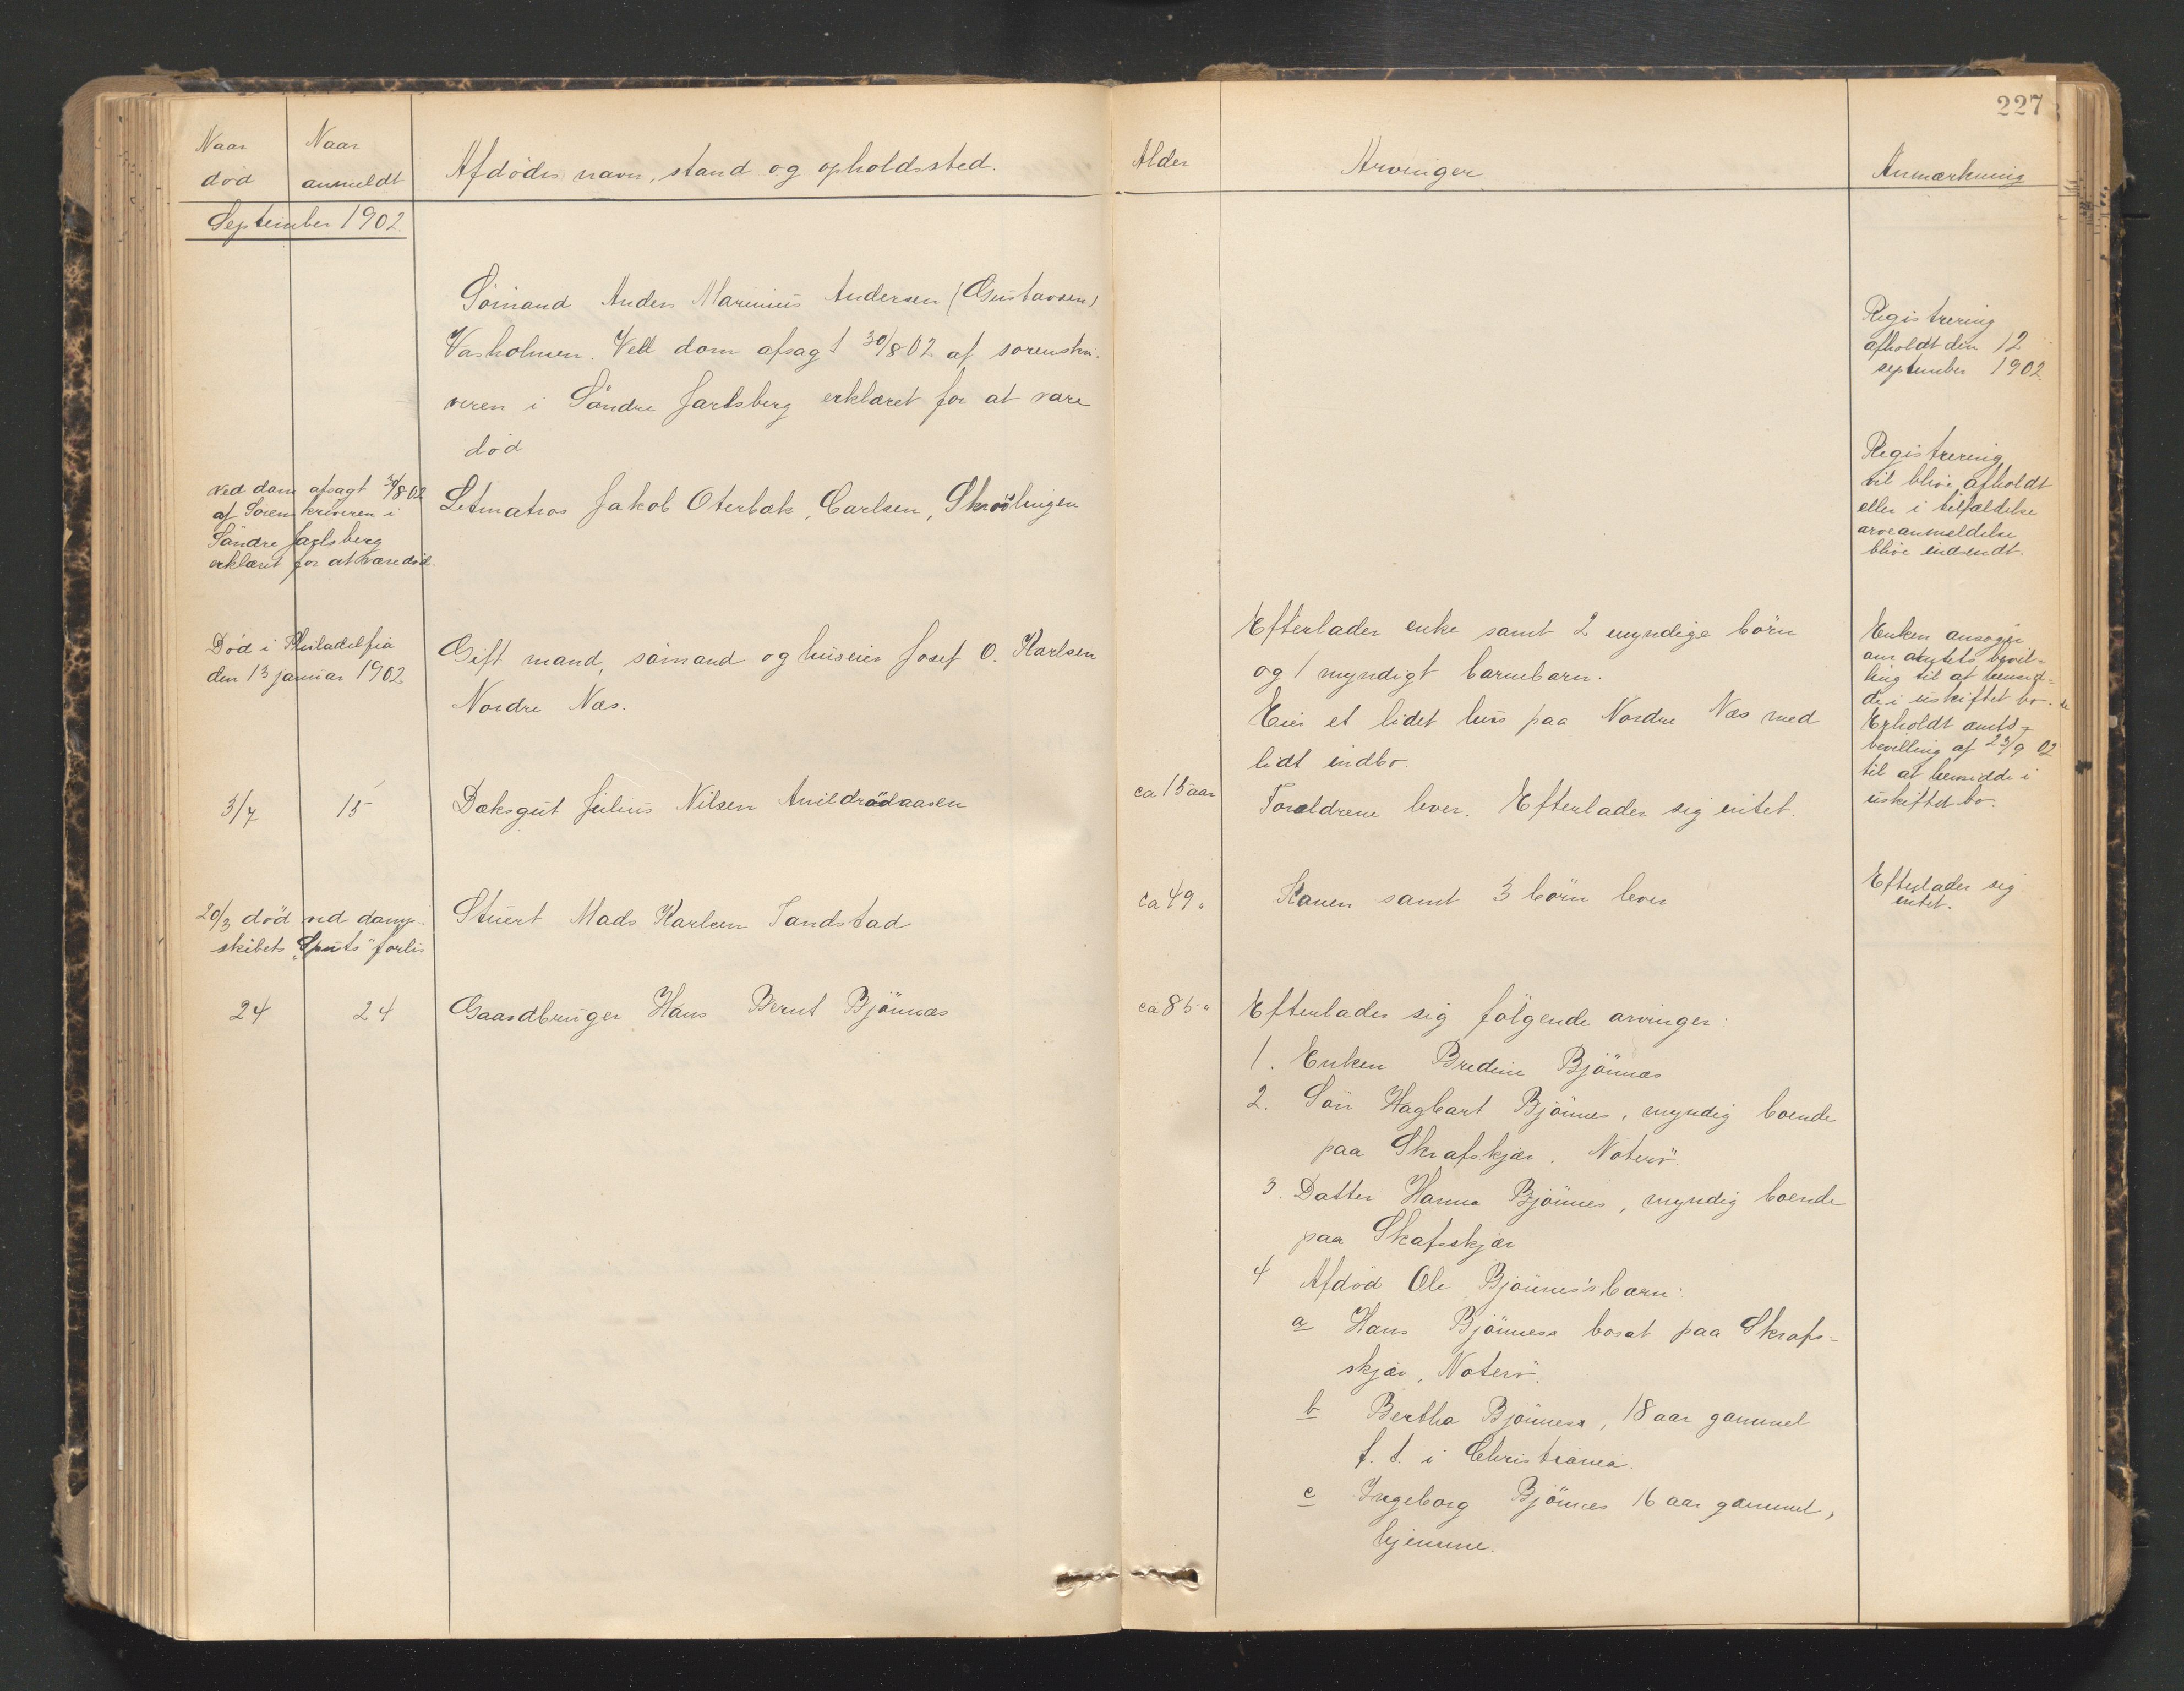 227
Naar død
Naar anmeldt
Afdödes navn, stand og opholdssted.
Alder
Arvinger
Anmærkning
September 1902.
Sömand Anders Marinius Andersen (Gustavsen)
Vasholmen. Ved dom afsagt 30/8 02 af sorenskri-
veren i Söndre Jarlsberg erklæret for at være
död
Registrering
afholdt den 12
september 1902.
Ved dom afsagt 30/8 02
af Sorenskriveren i
Söndre Jarlsberg
erklæret for at være död.
Letmatros Jakob Oterbæk, Carlsen,
Registrering
vil blive afholdt
eller i tilfældelse
arveanmeldelse
blive indsendt.
Död i Philadelfia
den 13 januar 1902
Gift mand, sömand og huseier Josef O. Karlsen
Nordre Næs.
Efterlader enke samt 2 myndige börn
og 1 myndigt barnebarn.
Eier et lidet hus paa Nordre Næs med
lidt indbo.
Enken ansøger
om amtets bevil-
ling til at hensid-
de i uskiftet bo.
Erholdt amts-
bevilling af 23/9 02
til at hensidde i
uskiftet bo.
3/7
15
Dæksgut Julius Nilsen
ca 15 aar
Forældrene lever. Efterlader sig intet.
20/3 död ved damp-
skibets "Sputs" forlis
Stuert Mads Karlsen Sandstad
ca 49 "
Konen samt 3 börn lever
Efterlader sig
intet.
24
24
Gaardbruger Hans Bernt Bjönnæs
ca 85 "
Efterlader sig fölgende arvinger:
1. Enken Bredine Bjönnæs
2. Sön Hagbart Bjönnes, myndig boende
paa Skrafskjær, Noterö
3. Datter Hanna Bjönnes, myndig boende
paa Skafsskjær
4 Afdöd Ole Bjönnes's barn:
a Hans Bjönness bosat paa Skrafs-
skjær, Noterö.
b Bertha Bjönness, 18 aar gammel
f. t. i Christiania.
c Ingeborg Bjönnes 16 aar gammel,
hjemme.